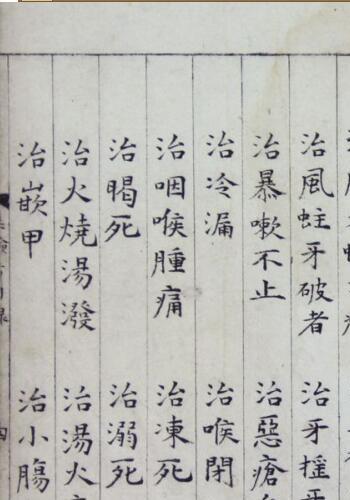 治風蛀牙破者
治牙摇
治暴嗽不止
治惡瘡
治冷漏
治喉閉
治咽喉腫痛
治凍死
治暍死
治溺死
治火燒湯潑
治湯火
治嵌甲
治小腸